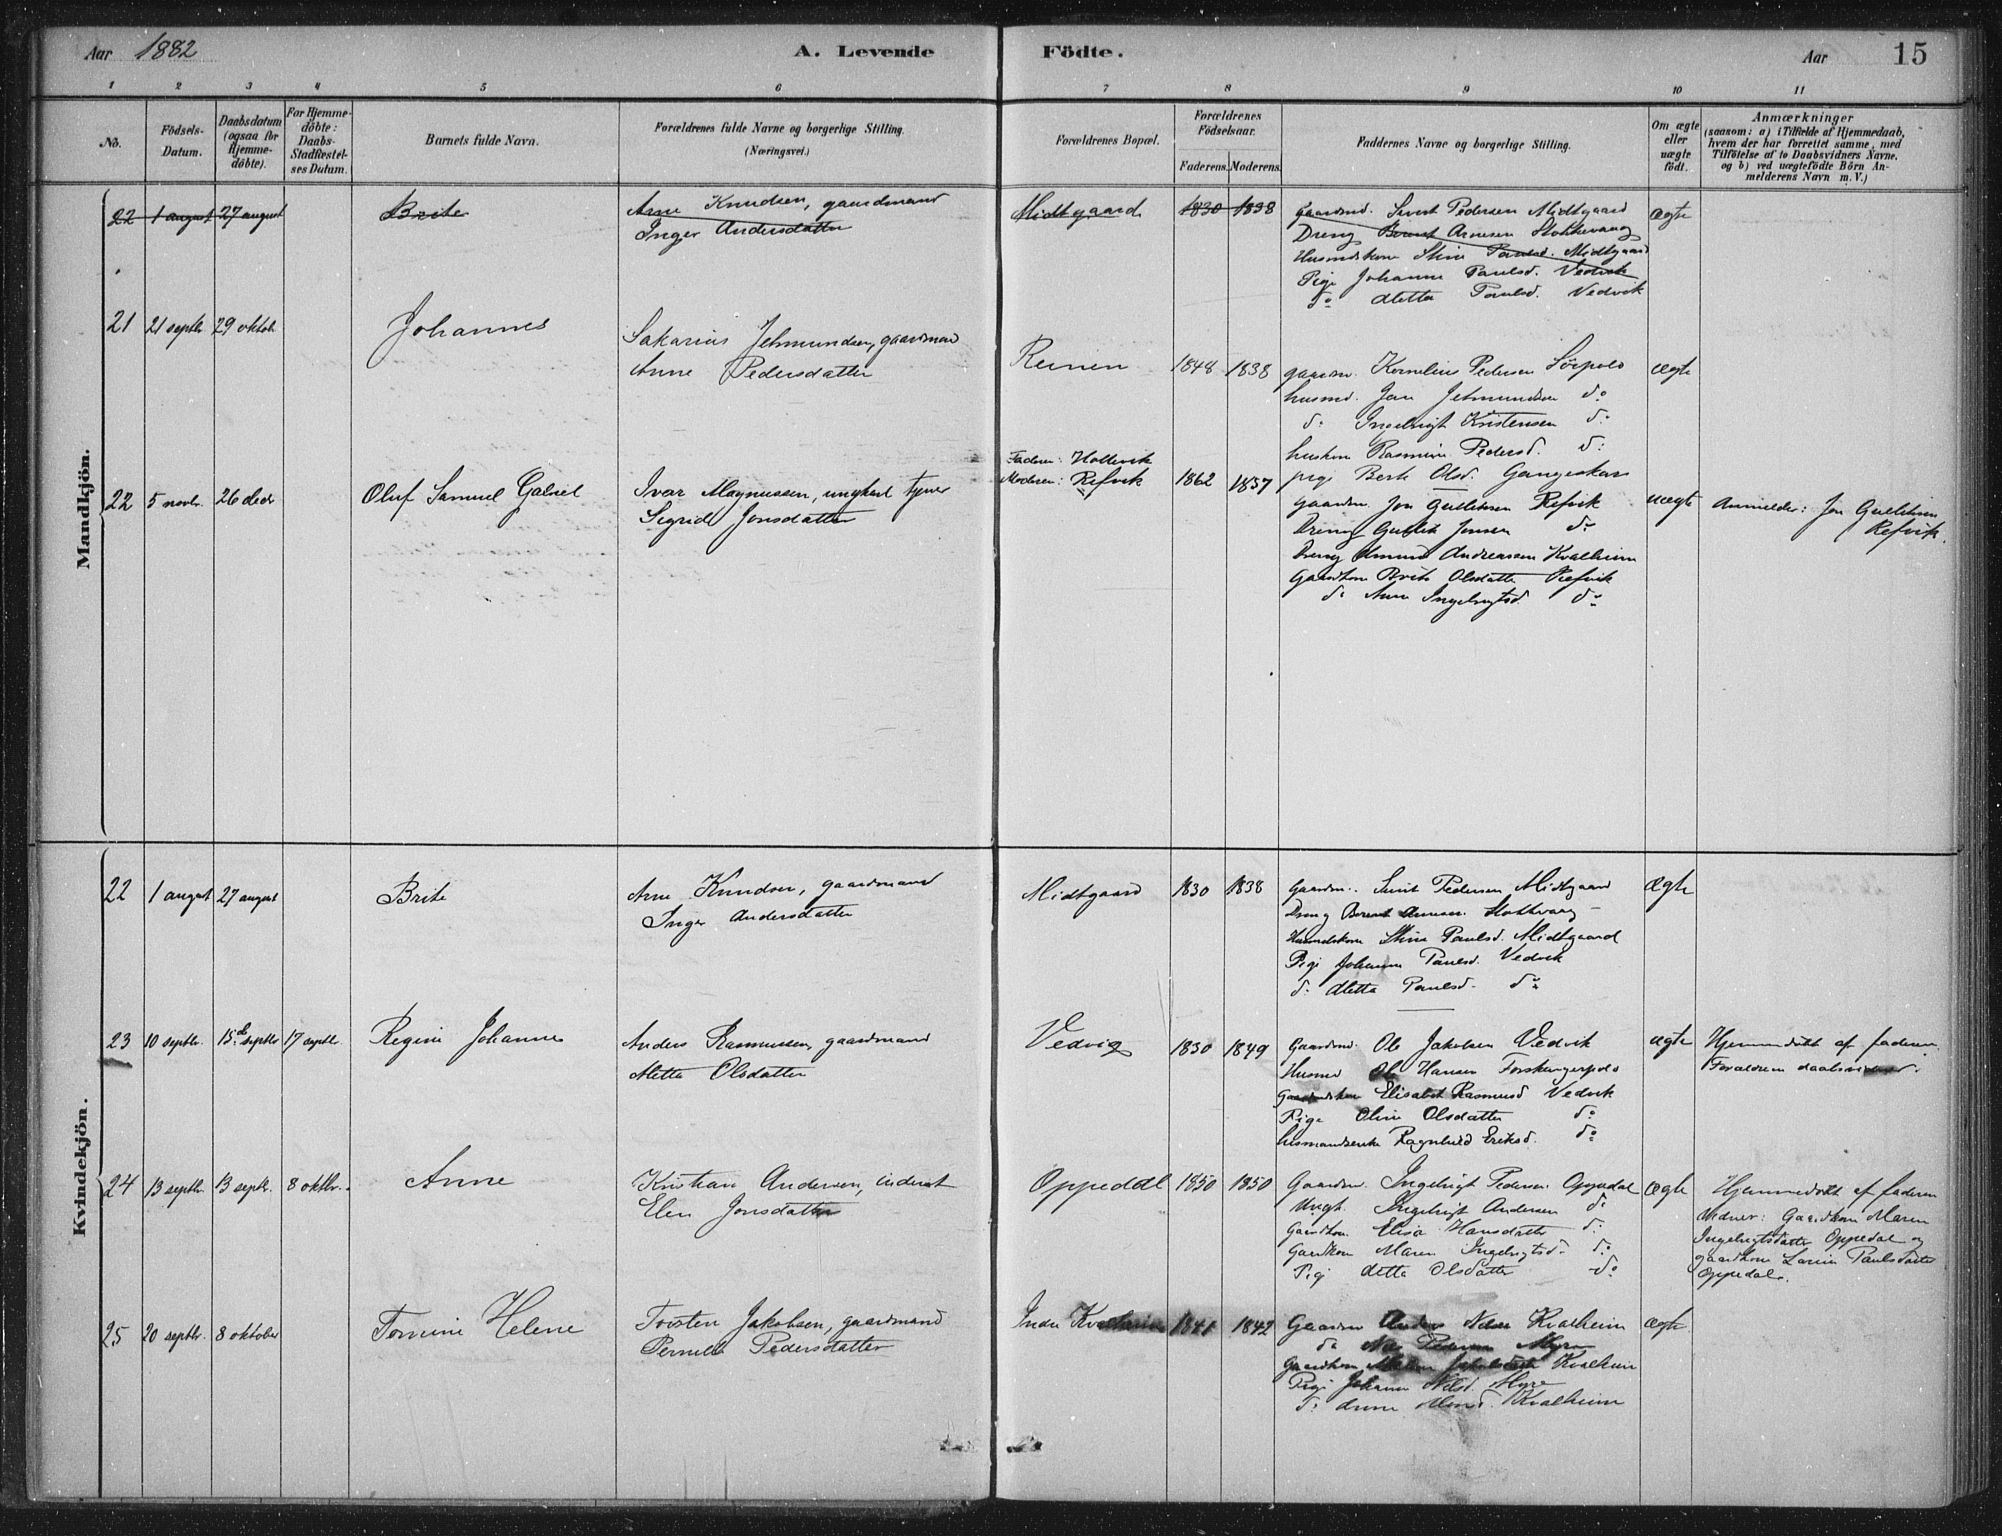 Aar 1882 A. Levende Födte. Aar 15
1 2 3 4 5 6 7 8 9 10 11
No. Födsels-Datum. Daabsdatum (ogsaa for Hjemmedöbte). For Hjemmedöbte: Daabs-Stadfæstelses Datum. Barnets fulde Navn. Forældrenes fulde Navne og borgerlige Stilling. (Næringsvei.) Forældrenes Bopæl. Forældrenes Födselsaar. Faderens. Moderens. Faddernes Navne og borgerlige Stilling. Om ægte eller uægte födt. Anmærkninger (saasom: a) i Tilfælde af Hjemmedaab, hvem der har forrettet samme, med Tilföielse af to Daabsvidners Navne, og b) ved uægtefödte Börn Anmelderens Navn m. V.)
Mandkjön.
22 1 august 27 august Brite Arne Knudsen, gaardmand Midtgaard 1830 1838 Gaardmd. Sivert Pedersen Midtgaard ægte
Inger Andersdatter Dreng Berent Arnesen Stokkevaag
Husmdskone Stine Paulsd. Midtgaard
Pige Johanne Paulsd. Vedvik
do Aletta Paulsd. Vedvik
21 21 septbr 29 oktob. Johannes Sakarias Jetmundsen, gaardmand
Anne Pedersdatter
Reinen 1848 1838 gaardm. Kornelius Pedersen Sörpolo ægte
husmd. Jon Jetmundsen do
do Ingebrigt Kristensen do
huskone Rasmine Pedersd. do
pige Berte Olsd. Gangeskar
22 5 novbr. 26 decbr Oluf Samuel Gabriel Ivar Magnussen, ungkarl tjener
Sigrid Jonsdatter
Faderen: Hollevik
Moderen: Refvik 1862 1857
gaardm. Jon Gulliksen Refvik uægte Anmelder: Jon Gulliksen
Refvik.
Dreng Gullik Jonsen do
Dreng Amund Andreassen Kvalheim
Gaardkone Brite Olsdatter Refvik
do Anne Ingebrigtsd. do
Kvindekjön.
22 1 august 27 august Brite Arne Knudsen, gaardmand Midtgaard 1830 1838 Gaardm. Sivert Pedersen Midtgaard Ægte
Inger Andersdatter Dreng Berent Arnesen Stokkevaag
Husmdskone Stine Paulsd. Midtgaard
Pige Johanne Paulsd. Vedvik
do Aletta Paulsd. do
23 10 septbr. 15de septbr 17 septbr. Regine Johanne Anders Rasmussen, gaardmand Vedvig 1830 1849 Gaardmd. Ole Jakobsen Vedvik ægte Hjemmedöbt af faderen.
Aletta Olsdatter Husmd Ole Hansen Forskergerpolo Forældrene daabsvidner.
Gaardmdskone Elisabet Rasmusd Vedvik
Pige Oline Olsdatter do
husmandsenke Ragnhild Eriksd. do
24 13 septbr. 13 septbr. 8 oktbr. Anne Kristian Andersen, inderst Oppedal 1850 1850 Gaardm. Ingebrigt Pedersen Oppedal Ægte Hjemmedöbt af faderen
Elen Jonsdatter Ungk. Ingebrigt Andersen do Vidner: Gaardkone Maren
Gaardkone Elisa Hansdatter do Ingebrigtsdatter Oppedal og
Gaardkone Maren Ingebrigtsd. do gaardkone Larine Paulsdatter
Pige Aletta Olsdatter do Oppedal.
25 20 septbr. 8 oktober Tomine Helene Torsten Jakobsen, gaardmand Indre Kvalheim 1841 1842 Gaardm Anders Nilsen Kvalheim Ægte
Pernille Pedersdatter do Nils Pedersen Myre
Gaardkone Jakobsdatter Kvalheim
Pige Johanne Nilsd. Myre
do Anne Kvalheim